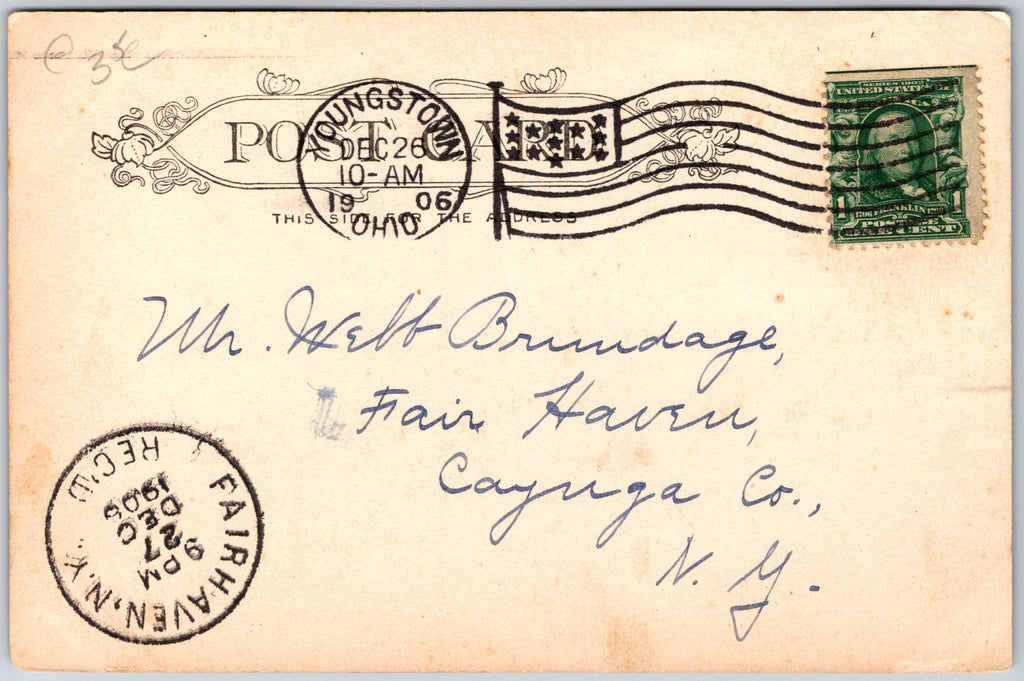 POST CARD
THIS SIDE FOR THE ADDRESS
YOUNGSTOWN
DEC 26
10-AM
19 06
OHIO
SERIES 1902
UNITED STATES OF
FRANKLIN
1 1
POSTAGE
ONE CENT
Mr. Webb Brundage,
Fair Haven,
Cayuga Co.,
N. Y.
FAIRHAVEN, N.Y.
9 PM
27
DEC
1906
REC'D